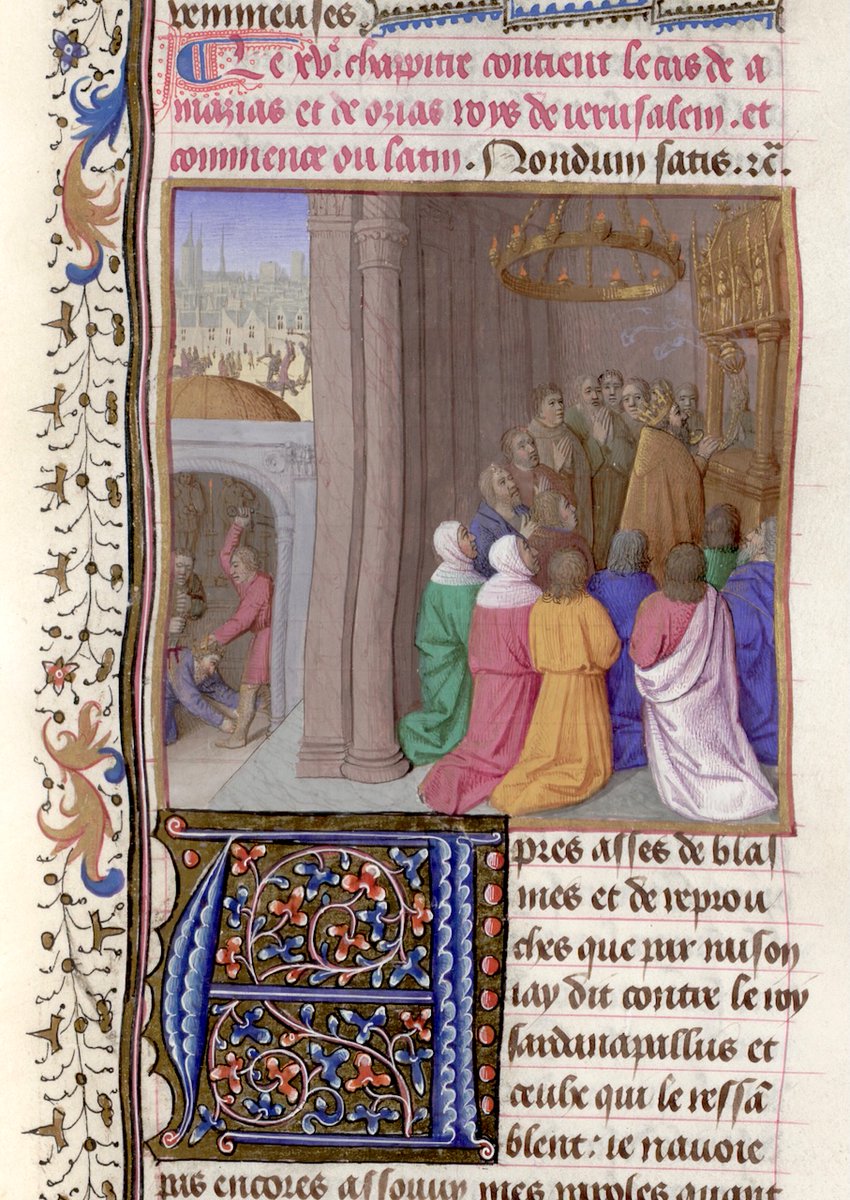 vemmeuses
Le xv.e chappitre contient le cas de a
mazias et de ozias roys de ierusalem. et
commence ou latin. Nondum satis. ⁊c̄.
Apres asses de blas
mes et de reprou
ches que par raison
iay dit contre le roy
sardanapallus et
ceulx qui le ressā
blent: ie navoie
pas encores assouvy mes paroles quant